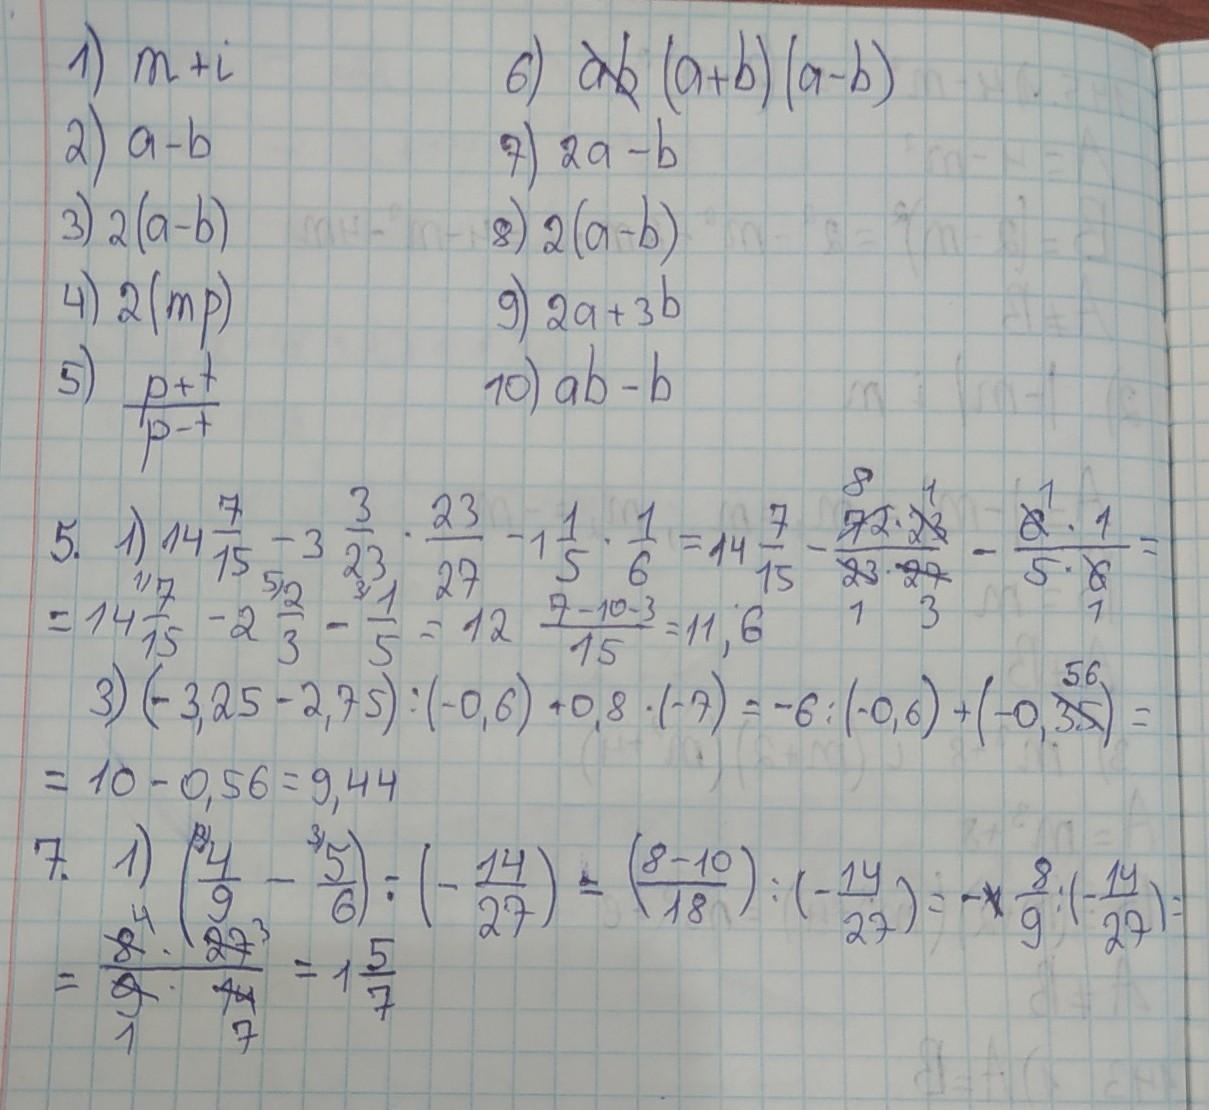 1) m+i
2) a-b
3) 2(a-b)
4) 2(mp)
5) p+t/p-t
6) (a+b)(a-b)
7) 2a-b
8) 2(a-b)
9) 2a+3b
10) ab-b
5. 1) 14 7/15 - 3 3/23 · 23/27 - 1 1/5 · 1/6 = 14 7/15 - 72·23/23·27 - 6·1/5·6 =
= 14 7/15 - 2 2/3 - 1/5 = 12 7-10-3/15 = 11,6
3) (-3,25-2,75):(-0,6)+0,8·(-7) = -6:(-0,6)+(-0,56) =
= 10-0,56=9,44
7. 1) (4/9 - 5/6) : (-14/27) = (8-10/18) : (-14/27) = - 8/9 : (-14/27) =
= 8·27/9·14 = 1 5/7